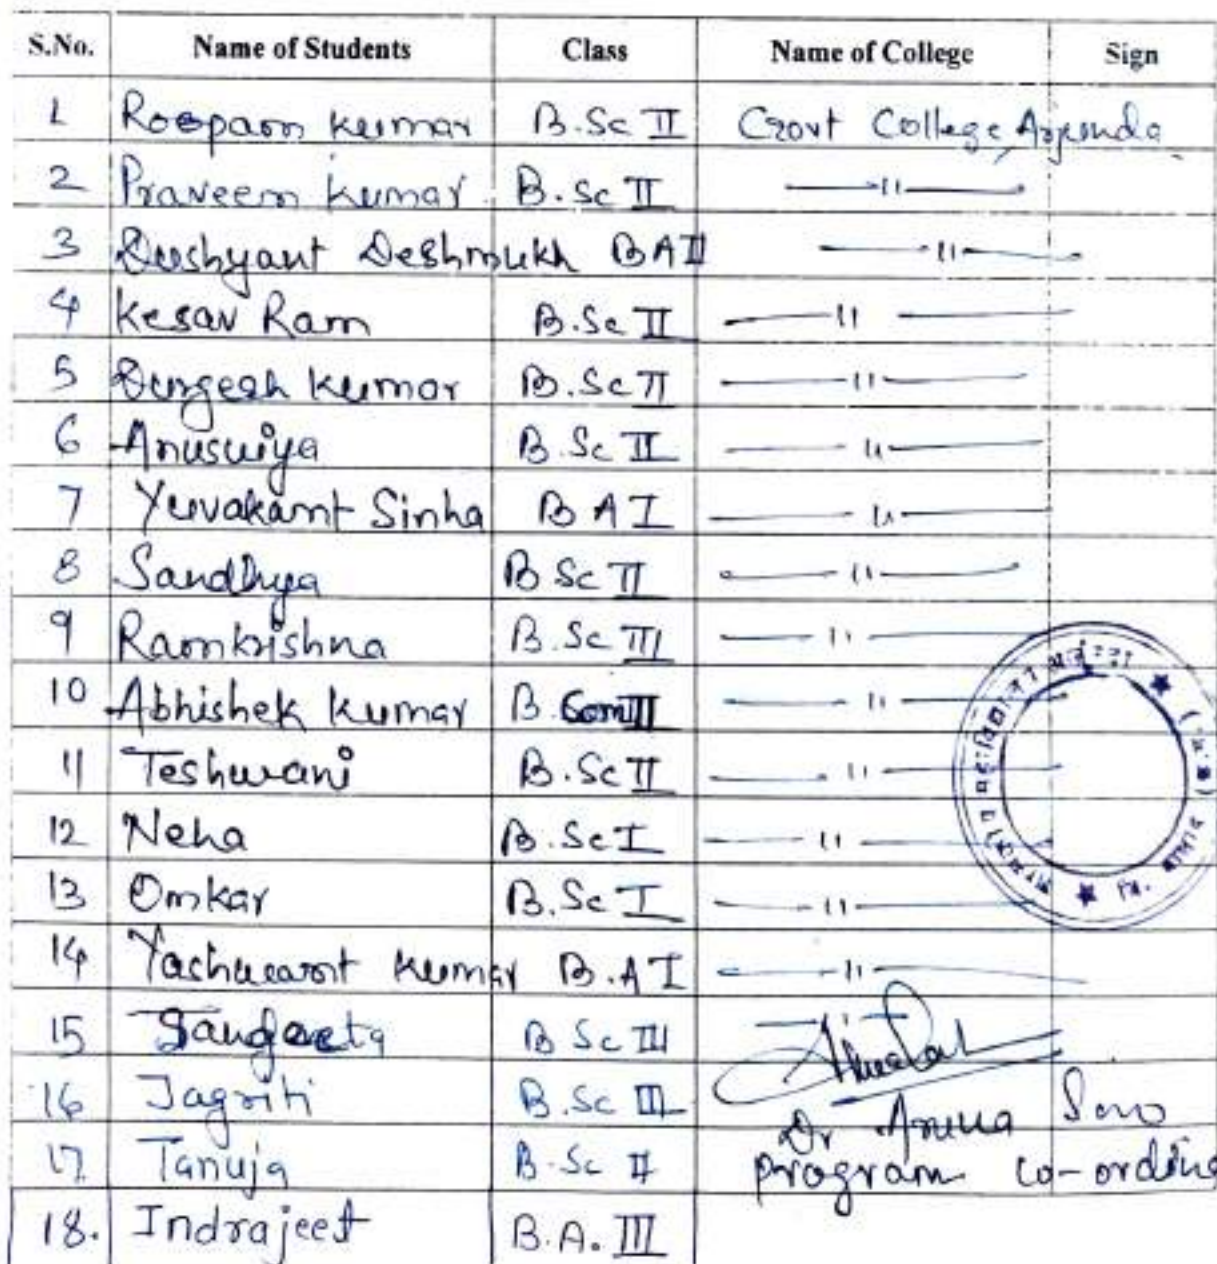 S.No. Name of Students Class Name of College Sign
1 Roopam Kumar B.Sc II Govt College, Arjunda
2 Praveen Kumar B.Sc II —11—
3 Dushyant Deshmukh BA II —11—
4 Kesav Ram B.Sc II —11—
5 Durgesh Kumar B.Sc II —11—
6 Anusuiya B.Sc II —11—
7 Yuvakant Sinha B A I —11—
8 Sandhya B Sc II —11—
9 Ramkrishna B.Sc III —11—
10 Abhishek Kumar B.Com III —11—
11 Teshwani B.Sc II —11—
12 Neha B.Sc I —11—
13 Omkar B.Sc I —11—
14 Yashwant Kumar B.A I —11—
15 Sangeeta B Sc III
16 Jagriti B.Sc III
17 Tanuja B.Sc II
Dr
program co-ordina
18. Indrajeet B.A. III